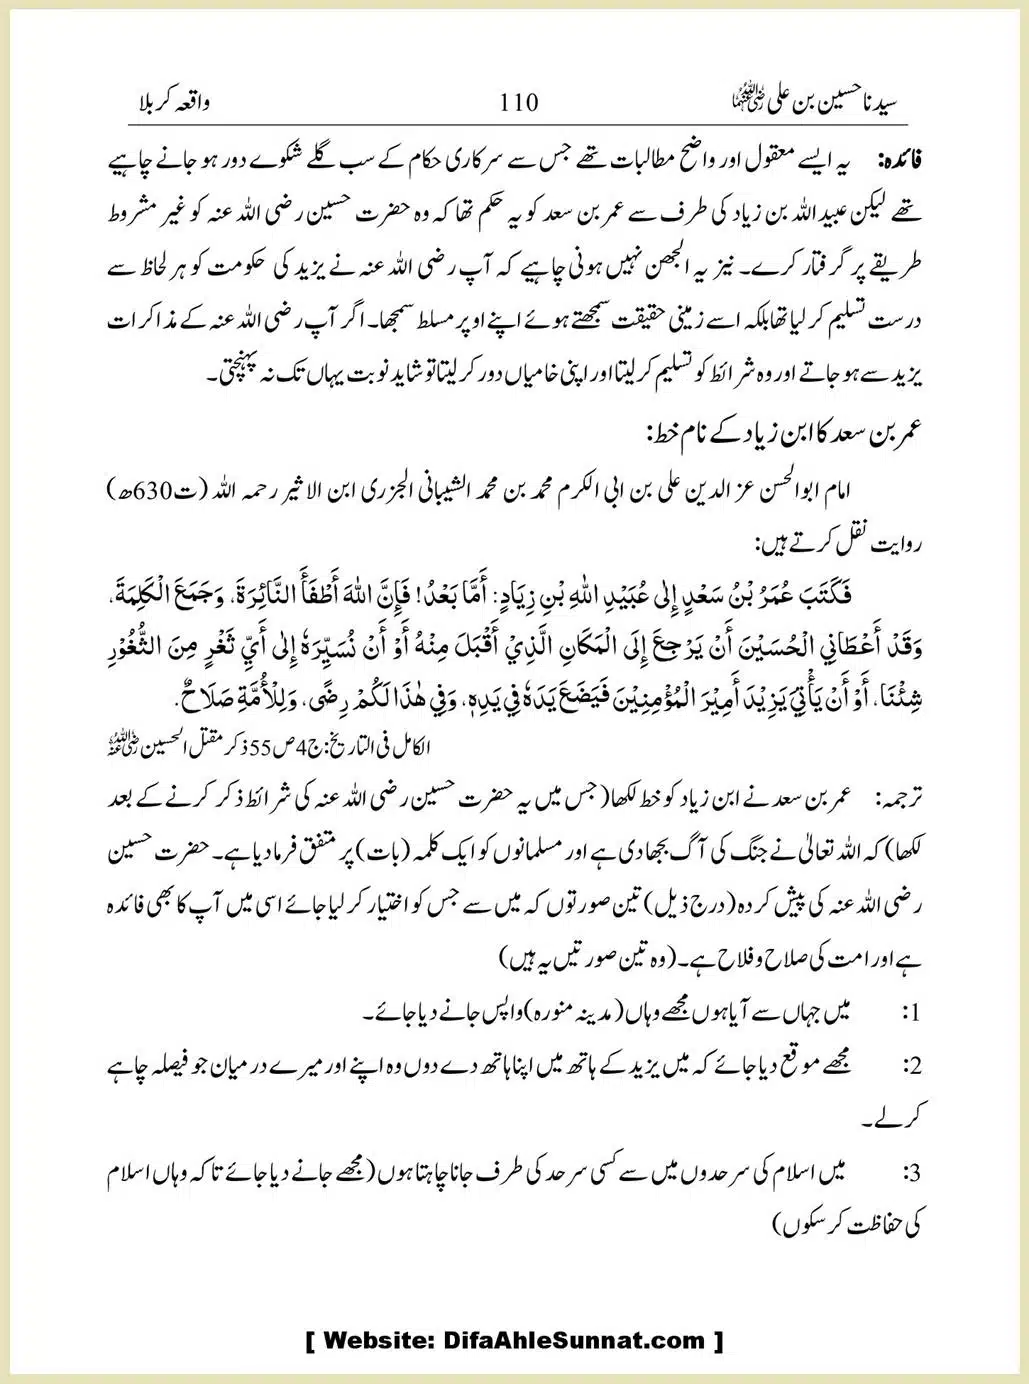 سیدنا حسین بن علی رضی اللہ عنہما 110 واقعہ کربلا
فائدہ: یہ ایسے معقول اور واضح مطالبات تھے جس سے سرکاری حکام کے سب گلے شکوے دور ہو جانے چاہیے
تھے لیکن عبید اللہ بن زیاد کی طرف سے عمر بن سعد کو یہ حکم تھا کہ وہ حضرت حسین رضی اللہ عنہ کو غیر مشروط
طریقے پر گرفتار کرے۔ نیز یہ الجھن نہیں ہونی چاہیے کہ آپ رضی اللہ عنہ نے یزید کی حکومت کو ہر لحاظ سے
درست تسلیم کر لیا تھا بلکہ اسے زمینی حقیقت سمجھتے ہوئے اپنے اوپر مسلط سمجھا۔ اگر آپ رضی اللہ عنہ کے مذاکرات
یزید سے ہو جاتے اور وہ شرائط کو تسلیم کر لیتا اور اپنی خامیاں دور کر لیتا تو شاید نوبت یہاں تک نہ پہنچتی۔
عمر بن سعد کا ابن زیاد کے نام خط:
امام ابو الحسن عز الدین علی بن ابی الکرم محمد بن محمد الشیبانی الجزری ابن الاثیر رحمہ اللہ (ت630ھ)
روایت نقل کرتے ہیں:
فَكَتَبَ عُمَرُ بْنُ سَعْدٍ إِلى عُبَيْدِ اللهِ بْنِ زِيَادٍ: أَمَّا بَعْدُ! فَإِنَّ اللهَ أَطْفَأَ النَّائِرَةَ، وَجَمَعَ الْكَلِمَةَ،
وَقَدْ أَعْطَانِي الْحُسَيْنَ أَنْ يَرْجِعَ إِلَى الْمَكَانِ الَّذِيْ أَقْبَلَ مِنْهُ أَوْ أَنْ نُسَيِّرَهٗ إِلٰى أَيِّ ثَغْرٍ مِنَ الثُّغُوْرِ
شِئْنَا، أَوْ أَنْ يَأْتِيَ يَزِيْدَ أَمِيْرَ الْمُؤْمِنِيْنَ فَيَضَعَ يَدَهٗ فِي يَدِهٖ، وَفِي هٰذَا لَكُمْ رِضًى، وَلِلْأُمَّةِ صَلَاحٌ.
الکامل فی التاریخ: ج4 ص55 ذکر مقتل الحسین رضی اللہ عنہ
ترجمہ: عمر بن سعد نے ابن زیاد کو خط لکھا (جس میں یہ حضرت حسین رضی اللہ عنہ کی شرائط ذکر کرنے کے بعد
لکھا) کہ اللہ تعالیٰ نے جنگ کی آگ بجھا دی ہے اور مسلمانوں کو ایک کلمہ (بات) پر متفق فرما دیا ہے۔ حضرت حسین
رضی اللہ عنہ کی پیش کردہ (درج ذیل) تین صورتوں کہ میں سے جس کو اختیار کر لیا جائے اسی میں آپ کا بھی فائدہ
ہے اور امت کی صلاح و فلاح ہے۔ (وہ تین صورتیں یہ ہیں)
1: میں جہاں سے آیا ہوں مجھے وہاں (مدینہ منورہ) واپس جانے دیا جائے۔
2: مجھے موقع دیا جائے کہ میں یزید کے ہاتھ میں اپنا ہاتھ دے دوں وہ اپنے اور میرے درمیان جو فیصلہ چاہے
کرلے۔
3: میں اسلام کی سرحدوں میں سے کسی سرحد کی طرف جانا چاہتا ہوں (مجھے جانے دیا جائے تاکہ وہاں اسلام
کی حفاظت کر سکوں)
[ Website: DifaAhleSunnat.com ]